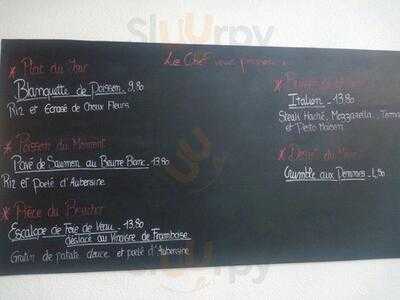 Sluurpy
Le Chef vous propose :
* Plat du Jour
Blanquette de Poisson - 9,80
Riz et Ecrasé de Choux Fleurs
* Poisson du Moment
Pavé de Saumon au Beurre Blanc - 13,80
Riz et Poelé d'Aubergine
* Pièce du Boucher
Escalope de Foie de Veau - 13,80
déglacé au Vinaigre de Framboise
Gratin de patate douce et poelé d'Aubergine
Italien - 13,80
Steak Haché, Mozzarella, Toma
et Pesto Maison
* Dessert du
Crumble aux Pommes -
Sluurpy